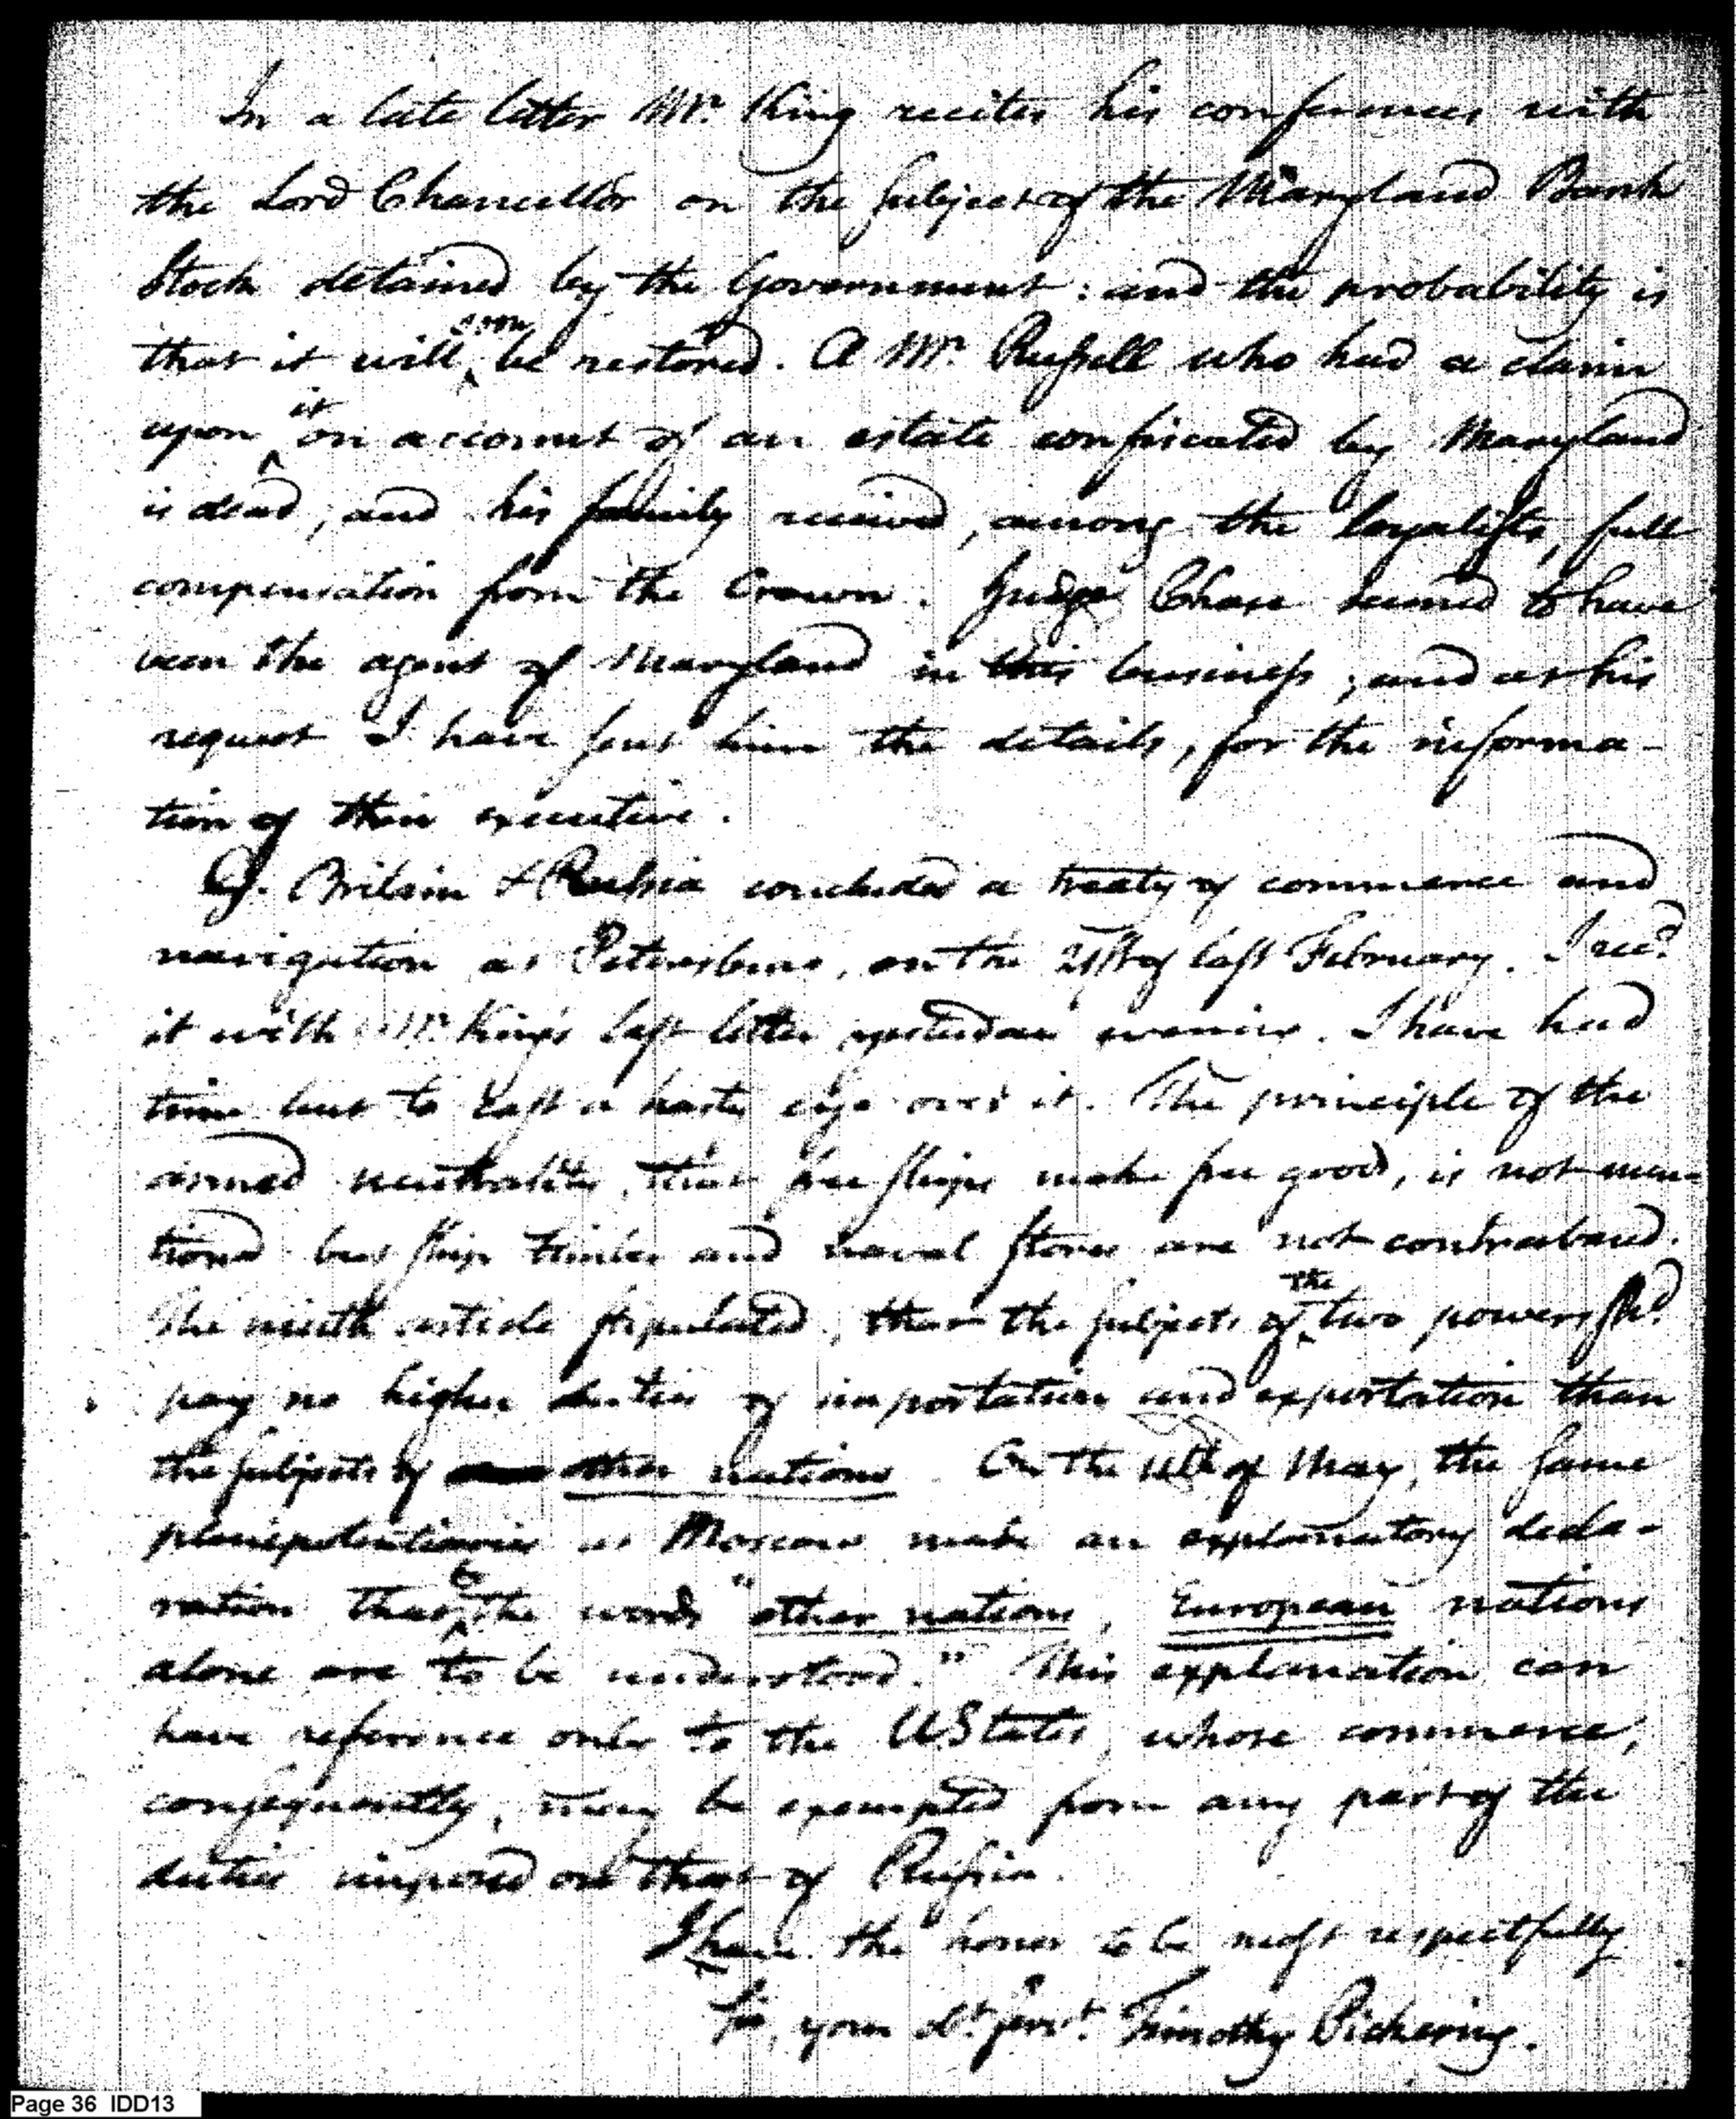 In a late letter Mr. King recites his conferences with
the Lord Chancellor on the subject of the Maryland Bank
Stock detained by the Government: and the probability is
that it will soon be restored. A Mr. Russell who had a claim
upon it on account of an estate confiscated by Maryland
is dead, and his family received, among the loyalists, full
compensation from the Crown. Judge Chase seemed to have
been the agent of Maryland in this business; and at his
request I have sent him the details, for the informa-
tion of their executive.
G. Britain & Russia concluded a treaty of commerce and
navigation at Petersburg, on the 21st of last February. I recd.
it with Mr. King's last letter yesterday evening. I have had
time but to cast a hasty eye over it. The principle of the
armed neutrality, that free ships make free goods, is not men-
tioned but ship timber and naval stores are not contraband.
The ninth article stipulated, that the subjects of the two powers shd.
pay no higher duties of importation and exportation than
the subjects of other nations. On the of May, the same
plenipotentiaries at Moscow made an explanatory decla-
ration that by the words "other nations, European nations
alone are to be understood." This explanation can
have reference only to the UStates, whose commerce,
consequently, may be exempted from any part of the
duties imposed on that of Russia.
I have the honor to be most respectfully
Sir, your obt. servt. Timothy Pickering.
Page 36 IDD13